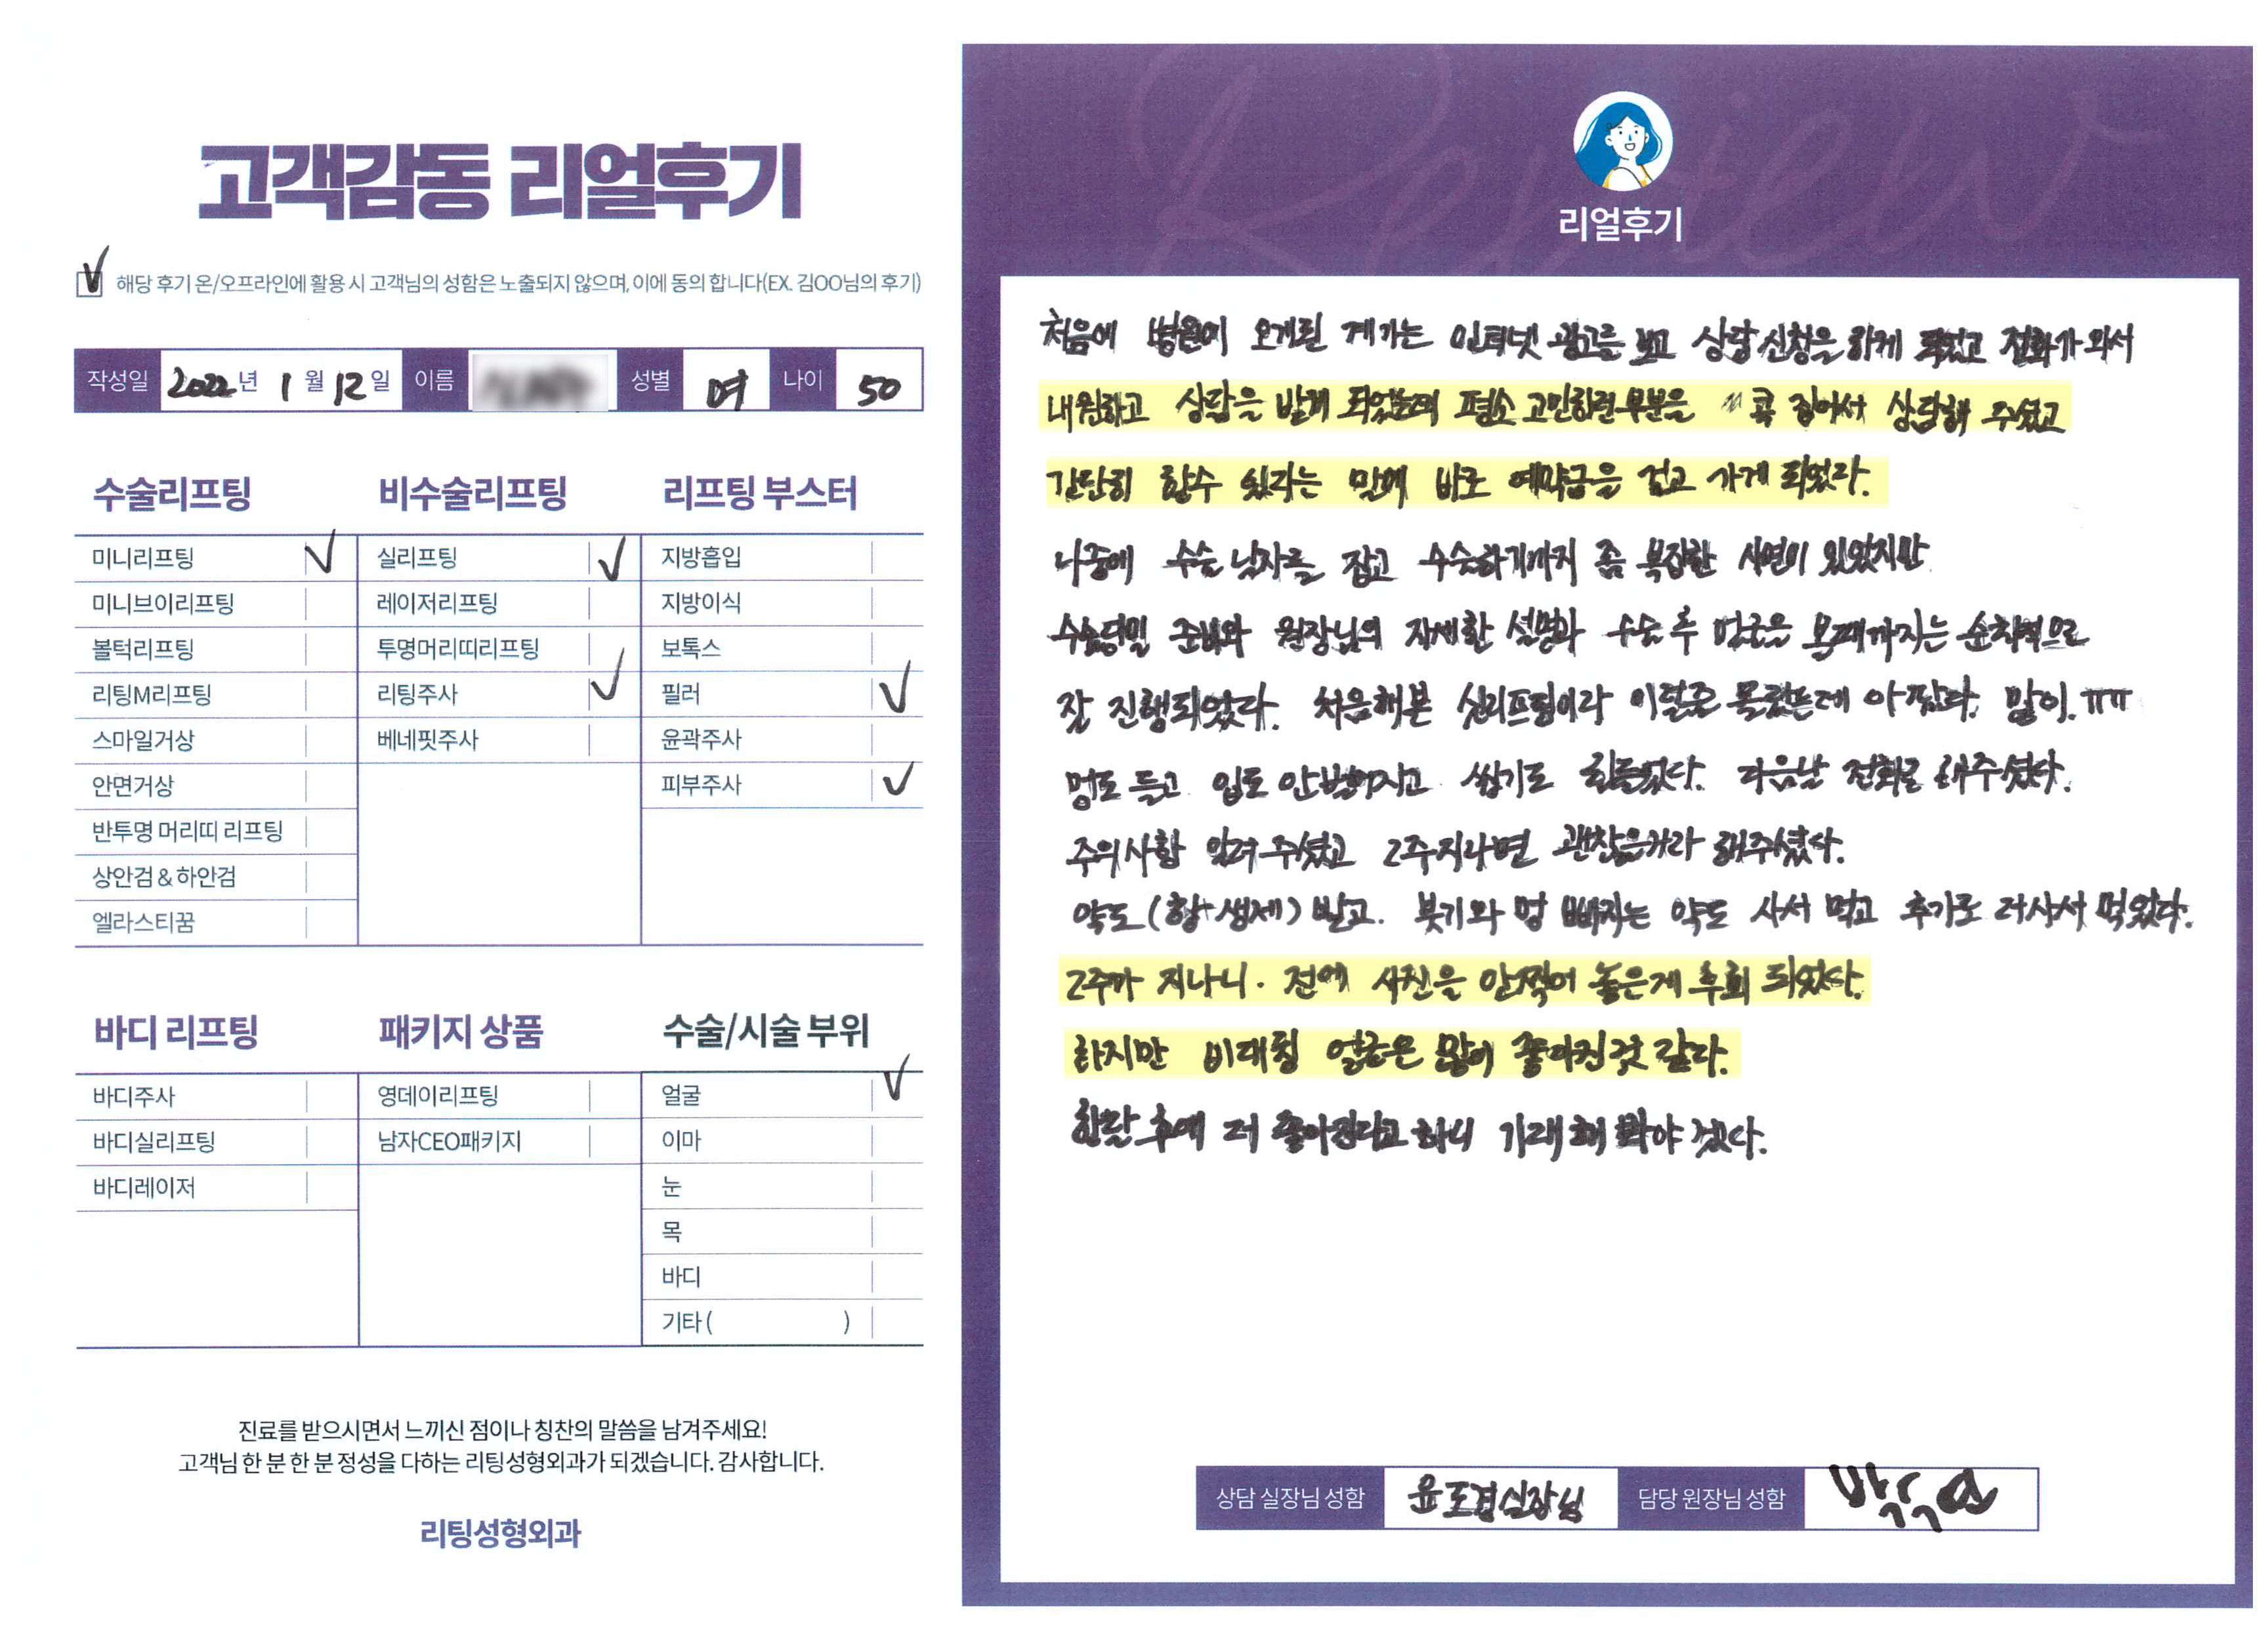 고객감동 리얼후기
해당 후기 온/오프라인에 활용 시 고객님의 성함은 노출되지 않으며, 이에 동의 합니다(EX. 김OO님의 후기)
작성일 2022년 1월 12일 이름 성별 여 나이 50
수술리프팅
미니리프팅
미니브이리프팅
볼턱리프팅
리팅M리프팅
스마일거상
안면거상
반투명 머리띠 리프팅
상안검 & 하안검
엘라스티꿈
비수술리프팅
실리프팅
레이저리프팅
투명머리띠리프팅
리팅주사
베네핏주사
리프팅 부스터
지방흡입
지방이식
보톡스
필러
윤곽주사
피부주사
바디 리프팅
바디주사
바디실리프팅
바디레이저
패키지 상품
영데이리프팅
남자CEO패키지
수술/시술 부위
얼굴
이마
눈
목
바디
기타 ( )
진료를 받으시면서 느끼신 점이나 칭찬의 말씀을 남겨주세요!
고객님 한 분 한 분 정성을 다하는 리팅성형외과가 되겠습니다. 감사합니다.
리팅성형외과
Review
리얼후기
처음에 병원에 오게된 계기는 인터넷 광고를 보고 상담신청을 하게 되었고 전화가 와서
내원하고 상담을 받게 되었는데 평소 고민하던부분을 콕 집어서 상담해 주셨고
간단히 할수 있다는 말에 바로 예약금을 걸고 가게 되었다.
나중에 수술 날자를 잡고 수술하기까지 좀 복잡한 사연이 있었지만
수술당일 준비와 원장님의 자세한 설명과 수술 후 얼굴을 볼때까지는 순차적으로
잘 진행되었다. 처음해본 실리프팅이라 이럴줄 몰랐는데 아팠다. 많이. ㅠㅠ
멍도 들고 입도 안벌어지고 씹기도 힘들었다. 다음날 전화로 해주셨다.
주의사항 알려주셨고 2주지나면 괜찮을거라 해주셨다.
약도 (항생제) 받고. 붓기와 멍 빠지는 약도 사서 먹고 추가로 더사서 먹었다.
2주가 지나니. 전에 사진을 안찍어 놓은게 후회 되었다.
하지만 비대칭 얼굴은 많이 좋아진것 같다.
한달 후에 더 좋아진다고 하니 기대해 봐야 겠다.
상담 실장님 성함 윤도겸실장님 담당 원장님 성함